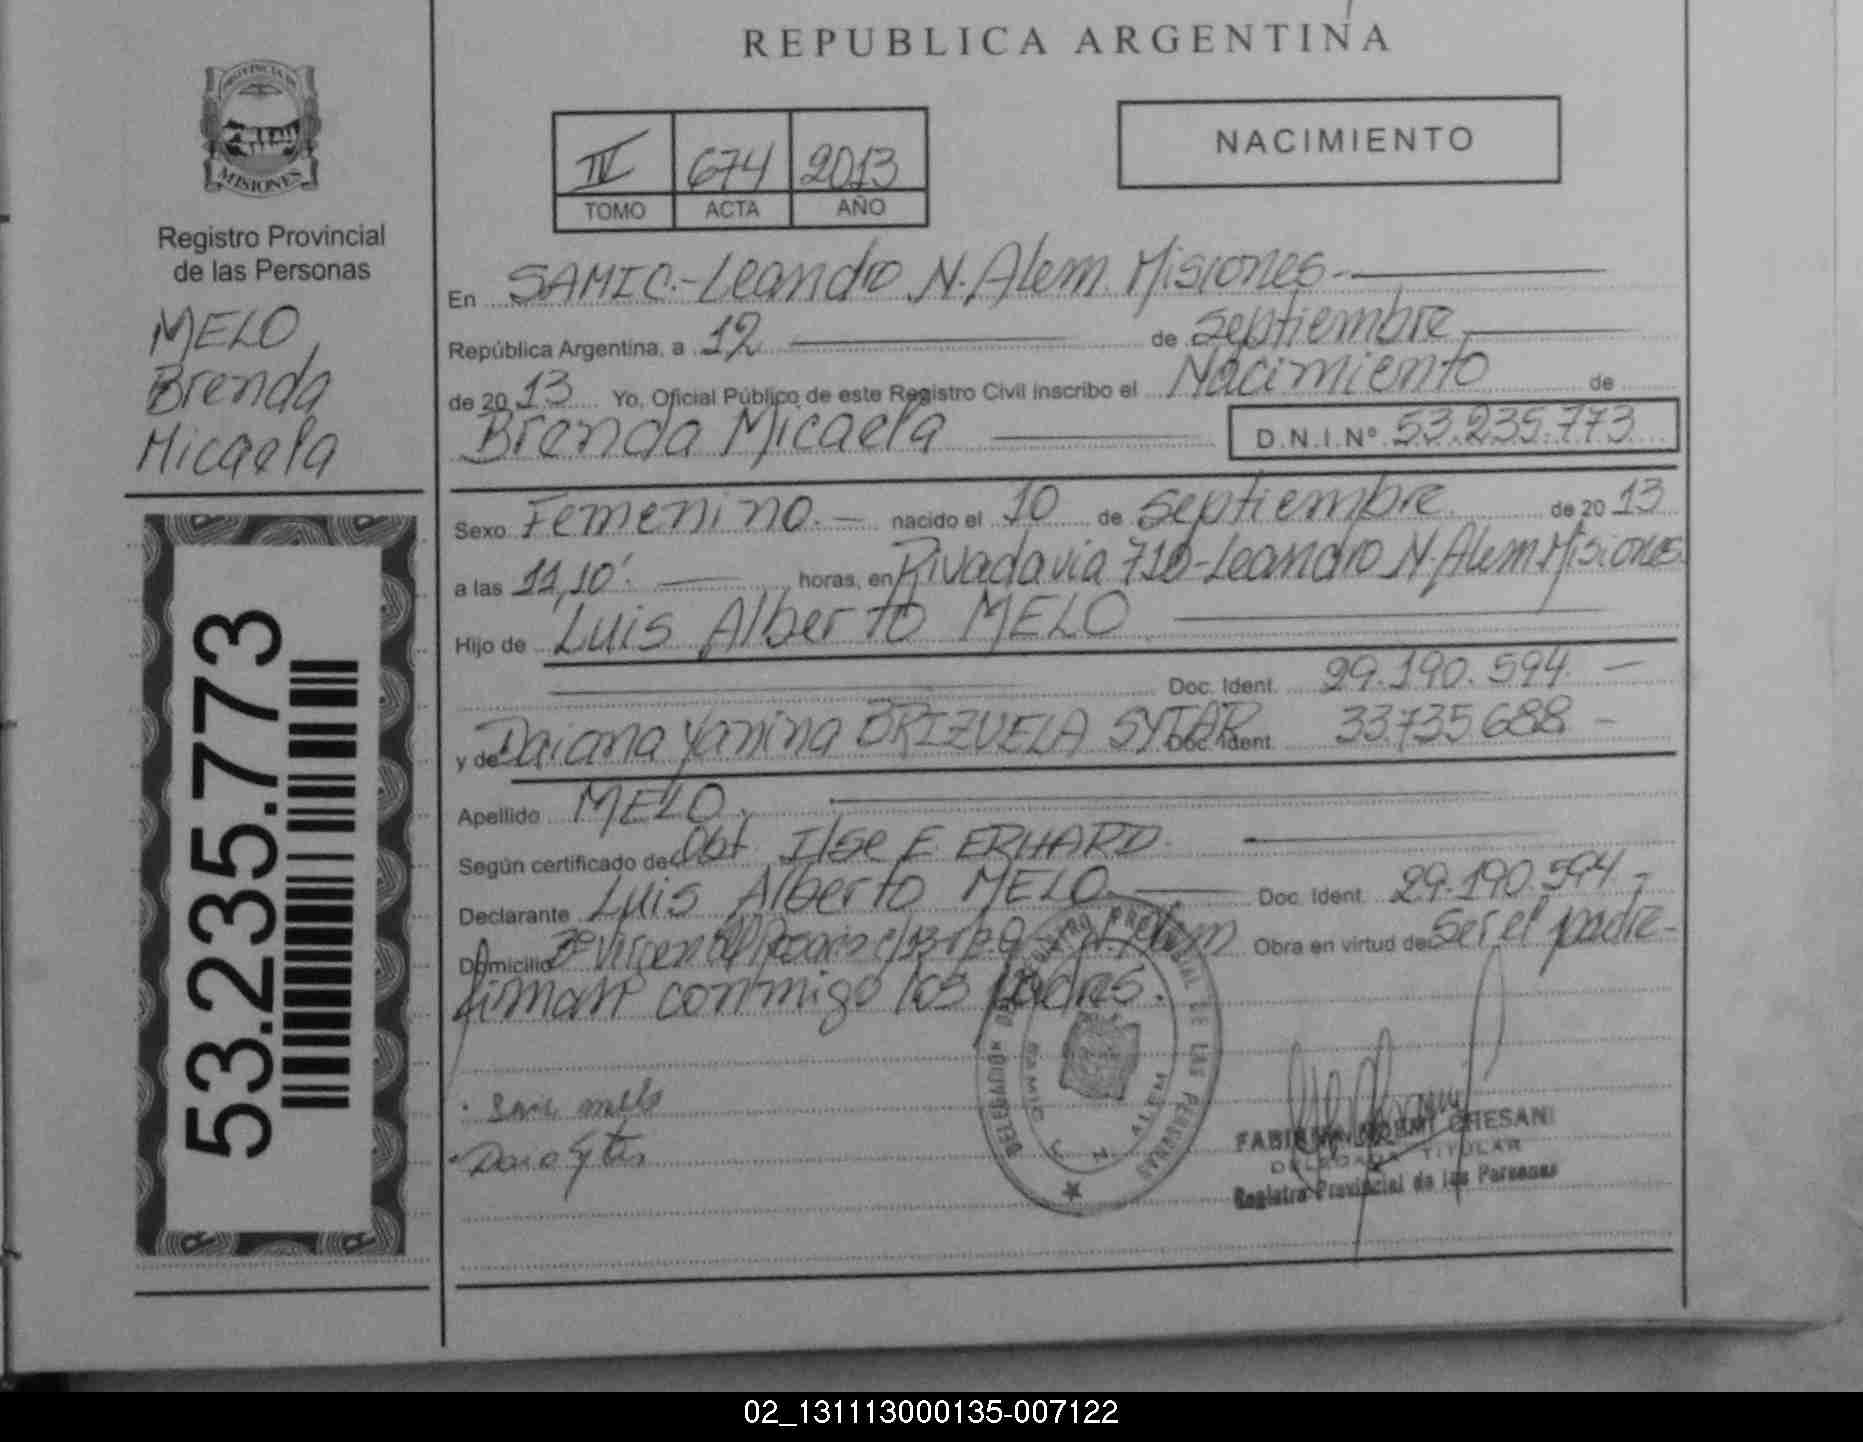 REPUBLICA ARGENTINA
PROVINCIA DE
MISIONES
Registro Provincial
de las Personas
MELO
Brenda
Micaela
53.235.773
IV 674 2013
TOMO ACTA AÑO
NACIMIENTO
En SAMIC.-Leandro N. Alem. Misiones-
República Argentina, a 12 de septiembre
de 20 13 Yo, Oficial Público de este Registro Civil inscribo el Nacimiento de
Brenda Micaela D.N.I.Nº 53.235.773
Sexo Femenino.- nacido el 10 de septiembre de 20 13
a las 11,10'. horas, en Rivadavia 710-Leandro N. Alem. Misiones.
Hijo de Luis Alberto MELO
Doc. Ident. 29.190.594.-
y de Daiana Yanina BRIZUELA SYTAR Doc. Ident. 33.735.688-
Apellido MELO.
Según certificado de Obt. Ilse E ERHARD.
Declarante Luis Alberto MELO Doc. Ident. 29.190.594.-
Domicilio Bº Virgen del Rosario Alem Obra en virtud de Ser el padre-
firman conmigo los padres.
DELEGACION DEL REGISTRO PROVINCIAL DE LAS PERSONAS
SAMIC L. N. ALEM
FABIANA NOEMI CHESANI
DELEGADA TITULAR
Registro Provincial de las Personas
02_131113000135-007122